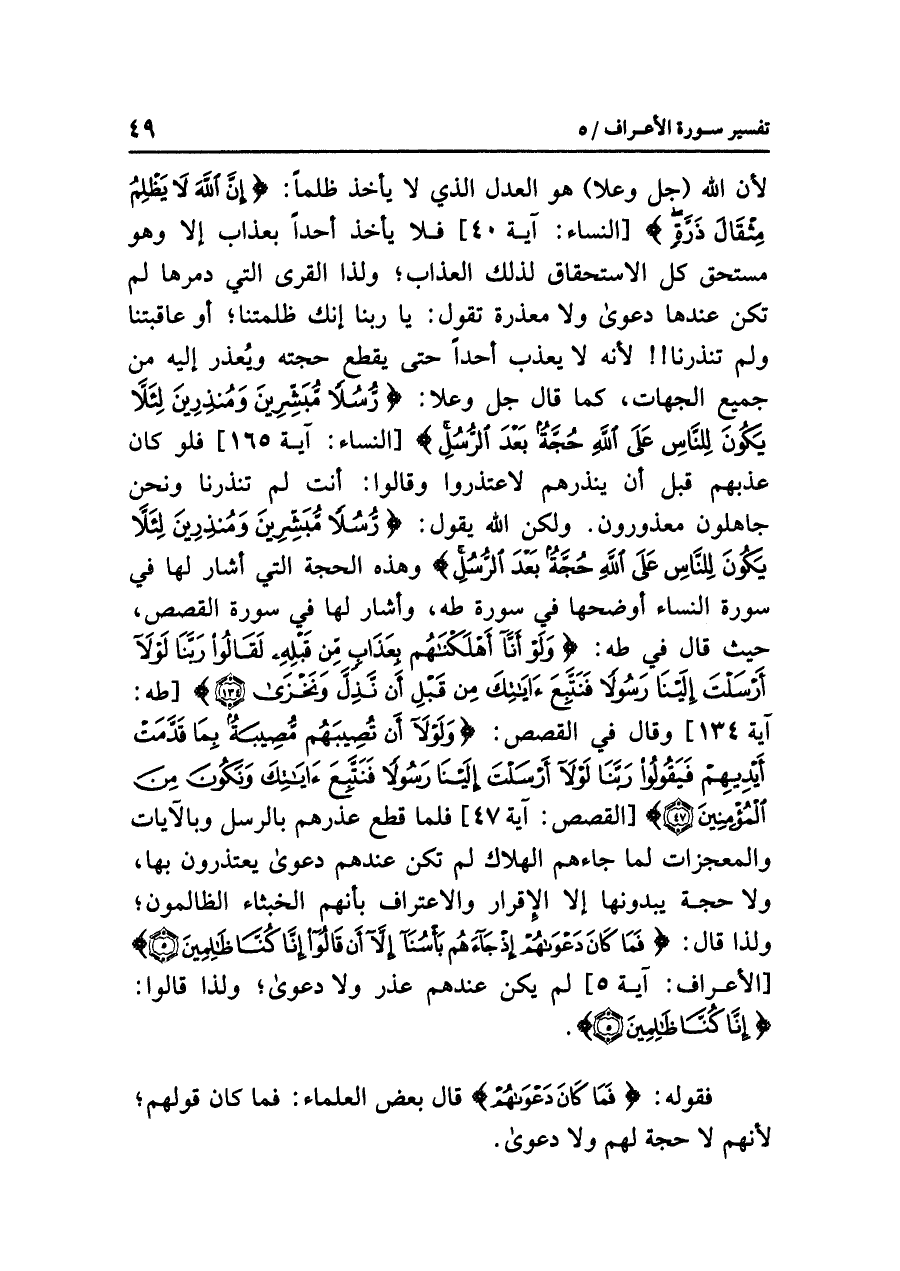 تفسير سـورة الأعـراف / ٥ ٤٩
لأن الله (جل وعلا) هو العدل الذي لا يأخذ ظلماً: ﴿ إِنَّ ٱللَّهَ لَا يَظْلِمُ
مِثْقَالَ ذَرَّةٍ ﴾ [النساء: آيـة ٤٠] فـلا يأخذ أحداً بعذاب إلا وهو
مستحق كل الاستحقاق لذلك العذاب؛ ولذا القرى التي دمرها لم
تكن عندها دعوىٰ ولا معذرة تقول: يا ربنا إنك ظلمتنا؛ أو عاقبتنا
ولم تنذرنا!! لأنه لا يعذب أحداً حتى يقطع حجته ويُعذر إليه من
جميع الجهات، كما قال جل وعلا: ﴿ رُّسُلًا مُّبَشِّرِينَ وَمُنذِرِينَ لِئَلَّا
يَكُونَ لِلنَّاسِ عَلَى ٱللَّهِ حُجَّةٌۢ بَعْدَ ٱلرُّسُلِۚ ﴾ [النساء: آيـة ١٦٥] فلو كان
عذبهم قبل أن ينذرهم لاعتذروا وقالوا: أنت لم تنذرنا ونحن
جاهلون معذورون. ولكن الله يقول: ﴿ رُّسُلًا مُّبَشِّرِينَ وَمُنذِرِينَ لِئَلَّا
يَكُونَ لِلنَّاسِ عَلَى ٱللَّهِ حُجَّةٌۢ بَعْدَ ٱلرُّسُلِۚ ﴾ وهذه الحجة التي أشار لها في
سورة النساء أوضحها في سورة طه، وأشار لها في سورة القصص،
حيث قال في طه: ﴿ وَلَوْ أَنَّآ أَهْلَكْنَٰهُم بِعَذَابٍ مِّن قَبْلِهِۦ لَقَالُوا۟ رَبَّنَا لَوْلَآ
أَرْسَلْتَ إِلَيْنَا رَسُولًا فَنَتَّبِعَ ءَايَٰتِكَ مِن قَبْلِ أَن نَّذِلَّ وَنَخْزَىٰ ۝١٣٤ ﴾ [طه:
آية ١٣٤] وقال في القصص: ﴿ وَلَوْلَآ أَن تُصِيبَهُم مُّصِيبَةٌۢ بِمَا قَدَّمَتْ
أَيْدِيهِمْ فَيَقُولُوا۟ رَبَّنَا لَوْلَآ أَرْسَلْتَ إِلَيْنَا رَسُولًا فَنَتَّبِعَ ءَايَٰتِكَ وَنَكُونَ مِنَ
ٱلْمُؤْمِنِينَ ۝٤٧ ﴾ [القصص: آية ٤٧] فلما قطع عذرهم بالرسل وبالآيات
والمعجزات لما جاءهم الهلاك لم تكن عندهم دعوىٰ يعتذرون بها،
ولا حجـة يبدونها إلا الإقرار والاعتراف بأنهم الخبثاء الظالمون؛
ولذا قال: ﴿ فَمَا كَانَ دَعْوَىٰهُمْ إِذْ جَآءَهُم بَأْسُنَآ إِلَّآ أَن قَالُوٓا۟ إِنَّا كُنَّا ظَٰلِمِينَ ۝٥ ﴾
[الأعـراف: آيـة ٥] لم يكن عندهم عذر ولا دعوىٰ؛ ولذا قالوا:
﴿ إِنَّا كُنَّا ظَٰلِمِينَ ۝٥ ﴾.
فقوله: ﴿ فَمَا كَانَ دَعْوَىٰهُمْ ﴾ قال بعض العلماء: فما كان قولهم؛
لأنهم لا حجة لهم ولا دعوىٰ.